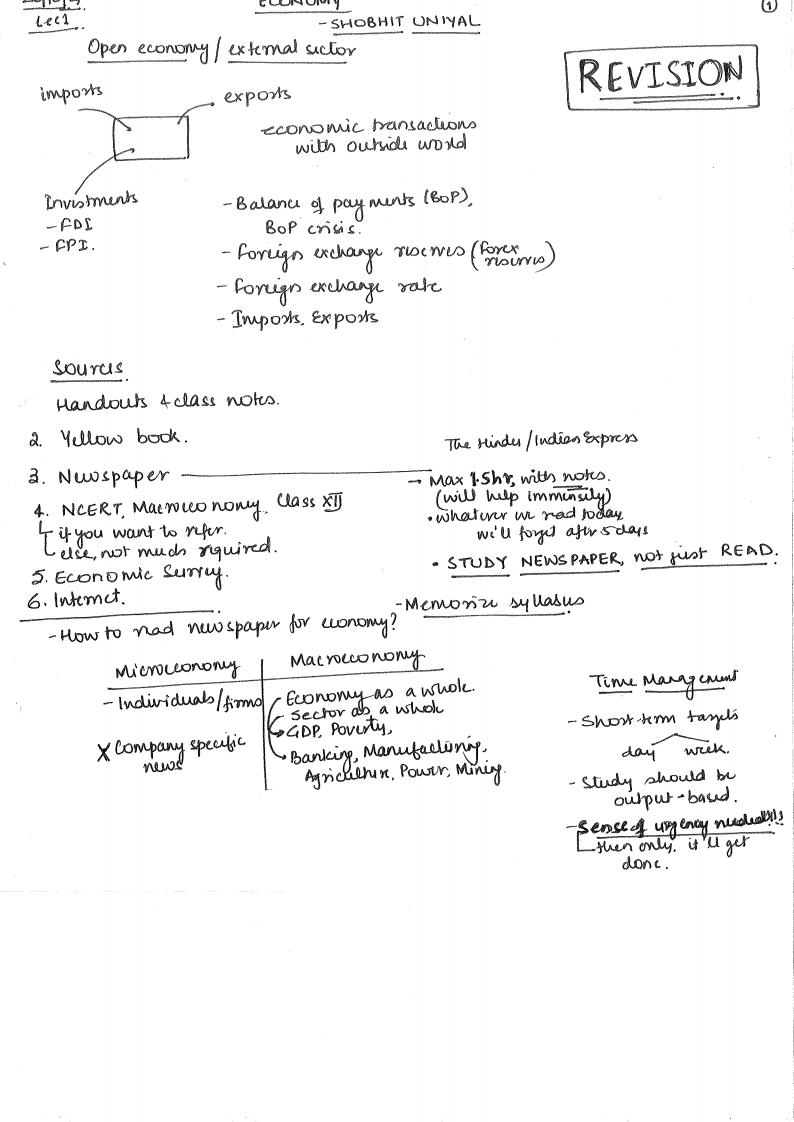 ECONOMY
Lec 1
- SHOBHIT UNIYAL
①
Open economy / external sector
REVISION
imports
exports
economic transactions
with outside world
Investments
- FDI
- FPI.
- Balance of payments (BoP),
BoP crisis.
- Foreign exchange reserves (forex reserves)
- Foreign exchange rate
- Imports, Exports
Sources
Handouts & class notes.
2. Yellow book.
The Hindu / Indian Express
3. Newspaper
→ Max 1.5hr, with notes.
(will help immensely)
• whatever we read today,
we'll forget after 5 days
• STUDY NEWSPAPER, not just READ.
4. NCERT, Macroeconomy, Class XII
if you want to refer.
else, not much required.
5. Economic Survey.
6. Internet.
- Memorize syllabus
- How to read newspaper for economy?
Microeconomy
- Individuals/firms
X Company specific
news
Macroeconomy
Economy as a whole.
Sector as a whole
GDP, Poverty,
Banking, Manufacturing,
Agriculture, Power, Mining.
Time Management
- Short-term targets
day week.
- Study should be
output-based.
- Sense of urgency needed!!!
then only, it'll get
done.